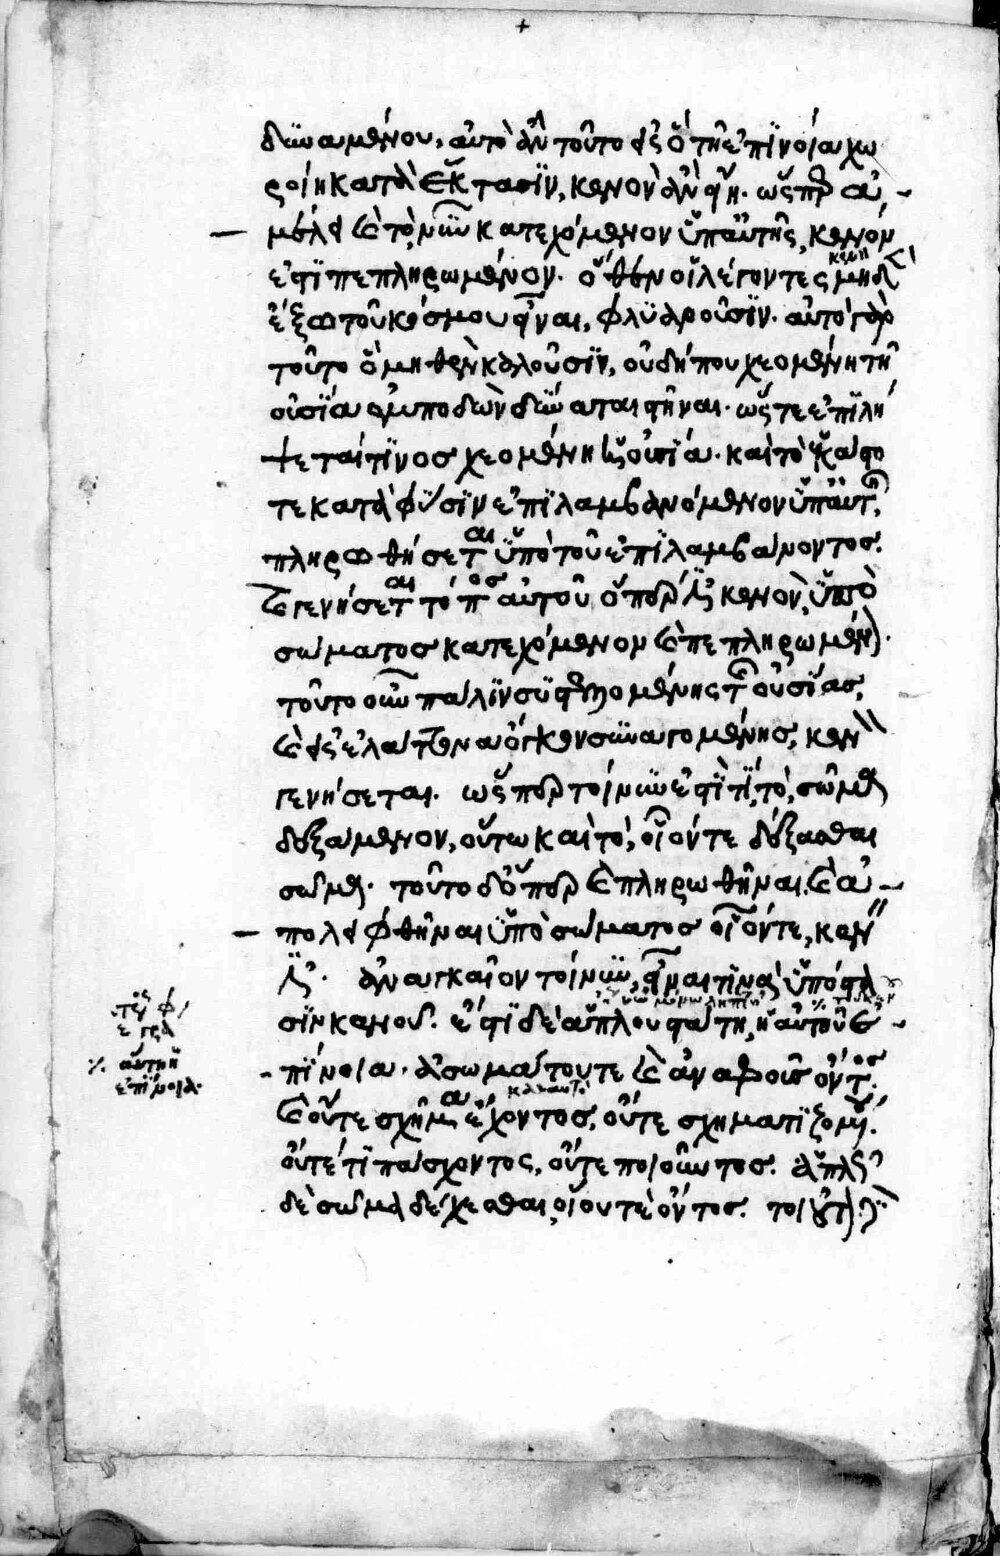 δυναμένου, αὐτὸ ἂν τοῦτο εἰς ὃ τῇ ἐπινοίᾳ χω
ροίη κατὰ ἔκτασιν, κενὸν ἂν εἴη. ὥσπερ
κατεχόμενον ὑπ' αὐτῆς, κενόν
ἐστι πεπληρωμένον. ὅθεν οἱ λέγοντες μηδὲν
ἔξω τοῦ κόσμου εἶναι, φλυαροῦσιν. αὐτὸ γὰρ
τοῦτο ὃ μηθὲν καλοῦσιν, οὐ δήπου χεομένῃ τῇ
οὐσίᾳ ἐμποδὼν δύναται στῆναι. ὥστε ἐπιλή
ψεταί τινος χεομένη ἡ οὐσία. καὶ τὸ ἑκάστο
τε κατὰ φύσιν ἐπιλαμβανόμενον ὑπ' αὐτῆς,
πληρωθήσεται ὑπὸ τοῦ ἐπιλαμβάνοντος.
καὶ γενήσεται τόπος αὐτοῦ ὅπερ ἐστὶ κενὸν ὑπὸ
σώματος κατεχόμενον καὶ πεπληρωμένον.
τοῦτο οὖν πάλιν συστελλομένης τῆς οὐσίας,
καὶ εἰς ἐλάττονα ὄγκον συναγομένης, κενὸν
γενήσεται. ὥσπερ τοίνυν ἐστί τι τὸ σῶμα
δεξάμενον, οὕτω καὶ τὸ οἷόν τε δέξασθαι
σῶμα. τοῦτο δὲ ὅπερ καὶ πληρωθῆναι καὶ ἀ
πολειφθῆναι ὑπὸ σώματος οἷόν τε, κενὸν
ἐστι. ἀναγκαῖον τοίνυν, εἶναί τινα ὑπόστα
σιν κενοῦ. ἔστι δὲ ἁπλουστάτη ἡ αὐτοῦ ἐ
πίνοια. ἀσωμάτου τε καὶ ἀναφοῦς ὄντος.
καὶ οὔτε σχῆμα ἔχοντος, οὔτε σχηματιζομένου.
οὔτε τι πάσχοντος, οὔτε ποιοῦντος. ἁπλῶς
δὲ σῶμα δέχεσθαι οἵου τε ὄντος.
αὕτη ἡ
ἐπίνοια.